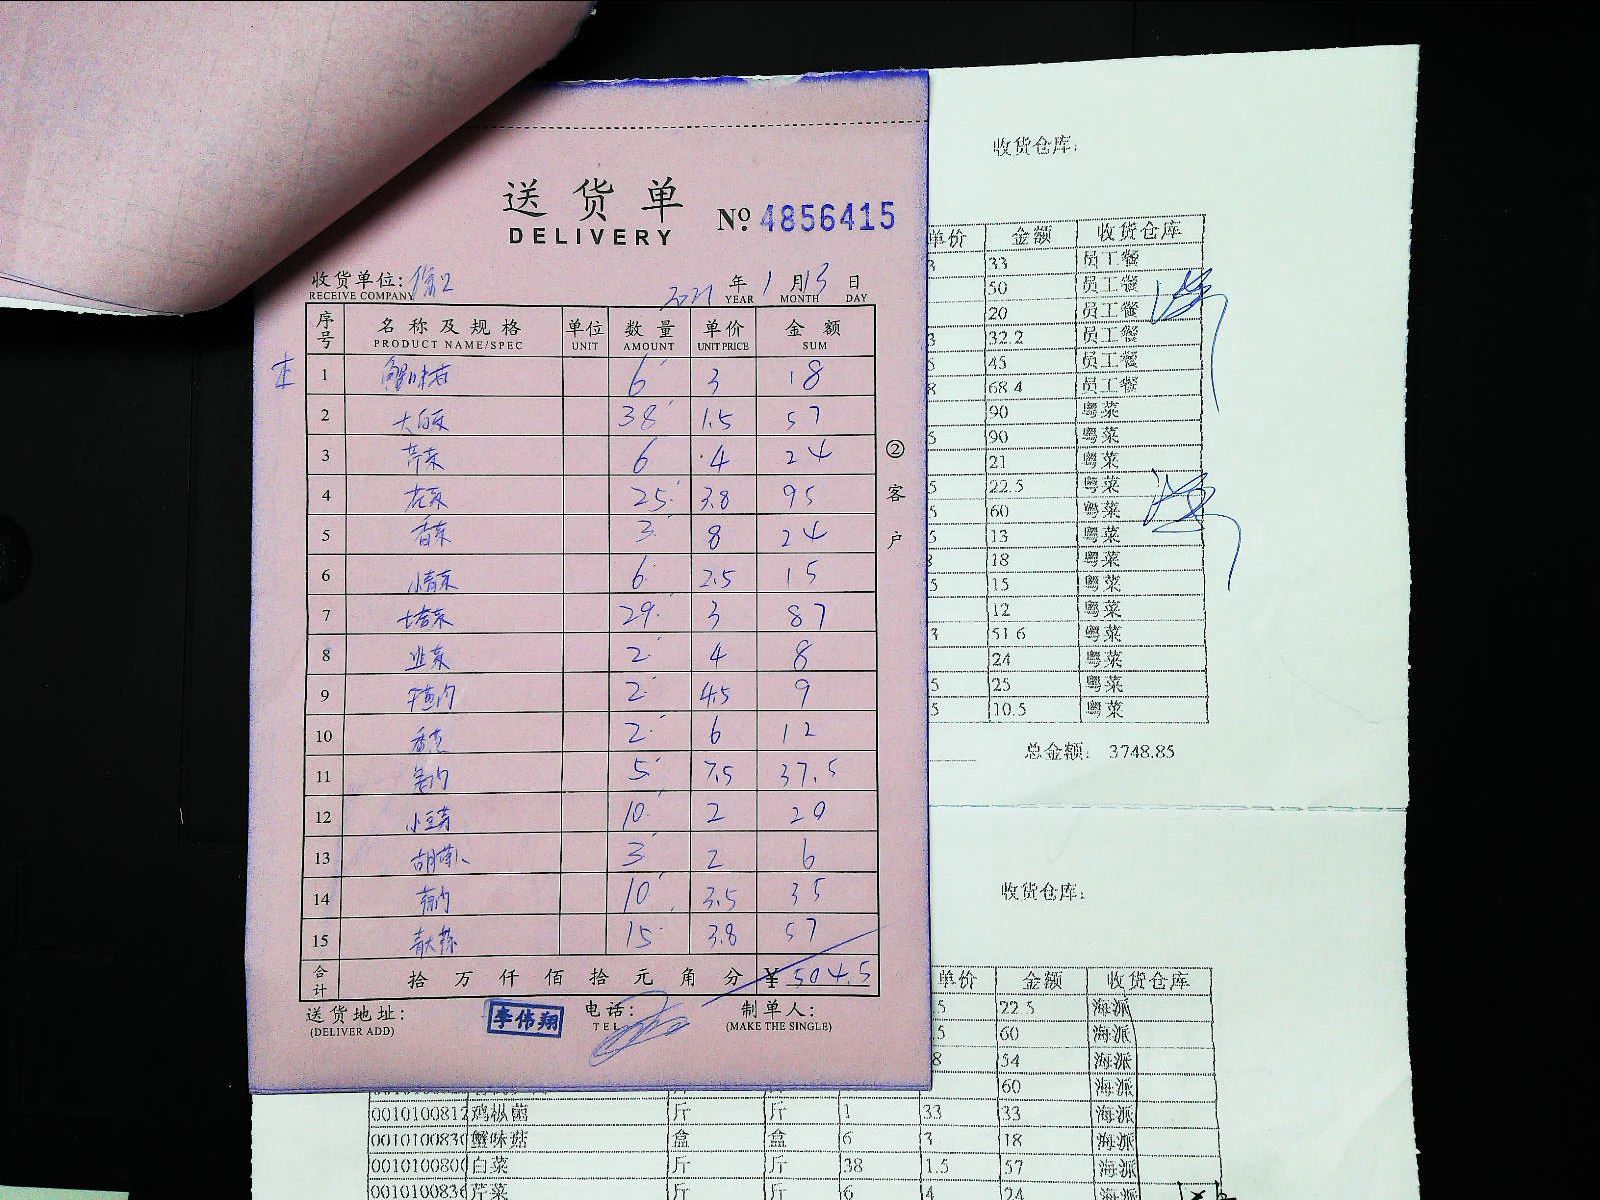 送货单
DELIVERY
№ 4856415
收货单位:
RECEIVE COMPANY
2021 年 1 月 13 日
YEAR MONTH DAY
序号 名称及规格 单位 数量 单价 金额
PRODUCT NAME/SPEC UNIT AMOUNT UNIT PRICE SUM
1 蟹味菇 6 3 18
2 大白菜 38 1.5 57
3 芹菜 6 4 24
4 花菜 25 3.8 95
5 香菜 3 8 24
6 小青菜 6 2.5 15
7 29 3 87
8 韭菜 2 4 8
9 2 4.5 9
10 2 6 12
11 5 7.5 37.5
12 10 2 20
13 3 2 6
14 10 3.5 35
15 15 3.8 57
合计 拾 万 仟 佰 拾 元 角 分 ¥ 504.5
送货地址:
(DELIVER ADD)
李伟翔
电话:
TEL
制单人:
(MAKE THE SINGLE)
②客户
收货仓库:
单价 金额 收货仓库
3 33 员工餐
50 员工餐
20 员工餐
3 32.2 员工餐
5 45 员工餐
8 68.4 员工餐
90 粤菜
5 90 粤菜
21 粤菜
5 22.5 粤菜
5 60 粤菜
5 13 粤菜
18 粤菜
5 15 粤菜
12 粤菜
3 51.6 粤菜
24 粤菜
5 25 粤菜
5 10.5 粤菜
总金额: 3748.85
收货仓库:
单价 金额 收货仓库
.5 22.5 海派
.5 60 海派
8 54 海派
60 海派
0010100812 鸡枞菌 斤 斤 1 33 33 海派
001010083 蟹味菇 盒 盒 6 3 18 海派
001010080 白菜 斤 斤 38 1.5 57 海派
001010083 芹菜 斤 斤 6 4 24 海派